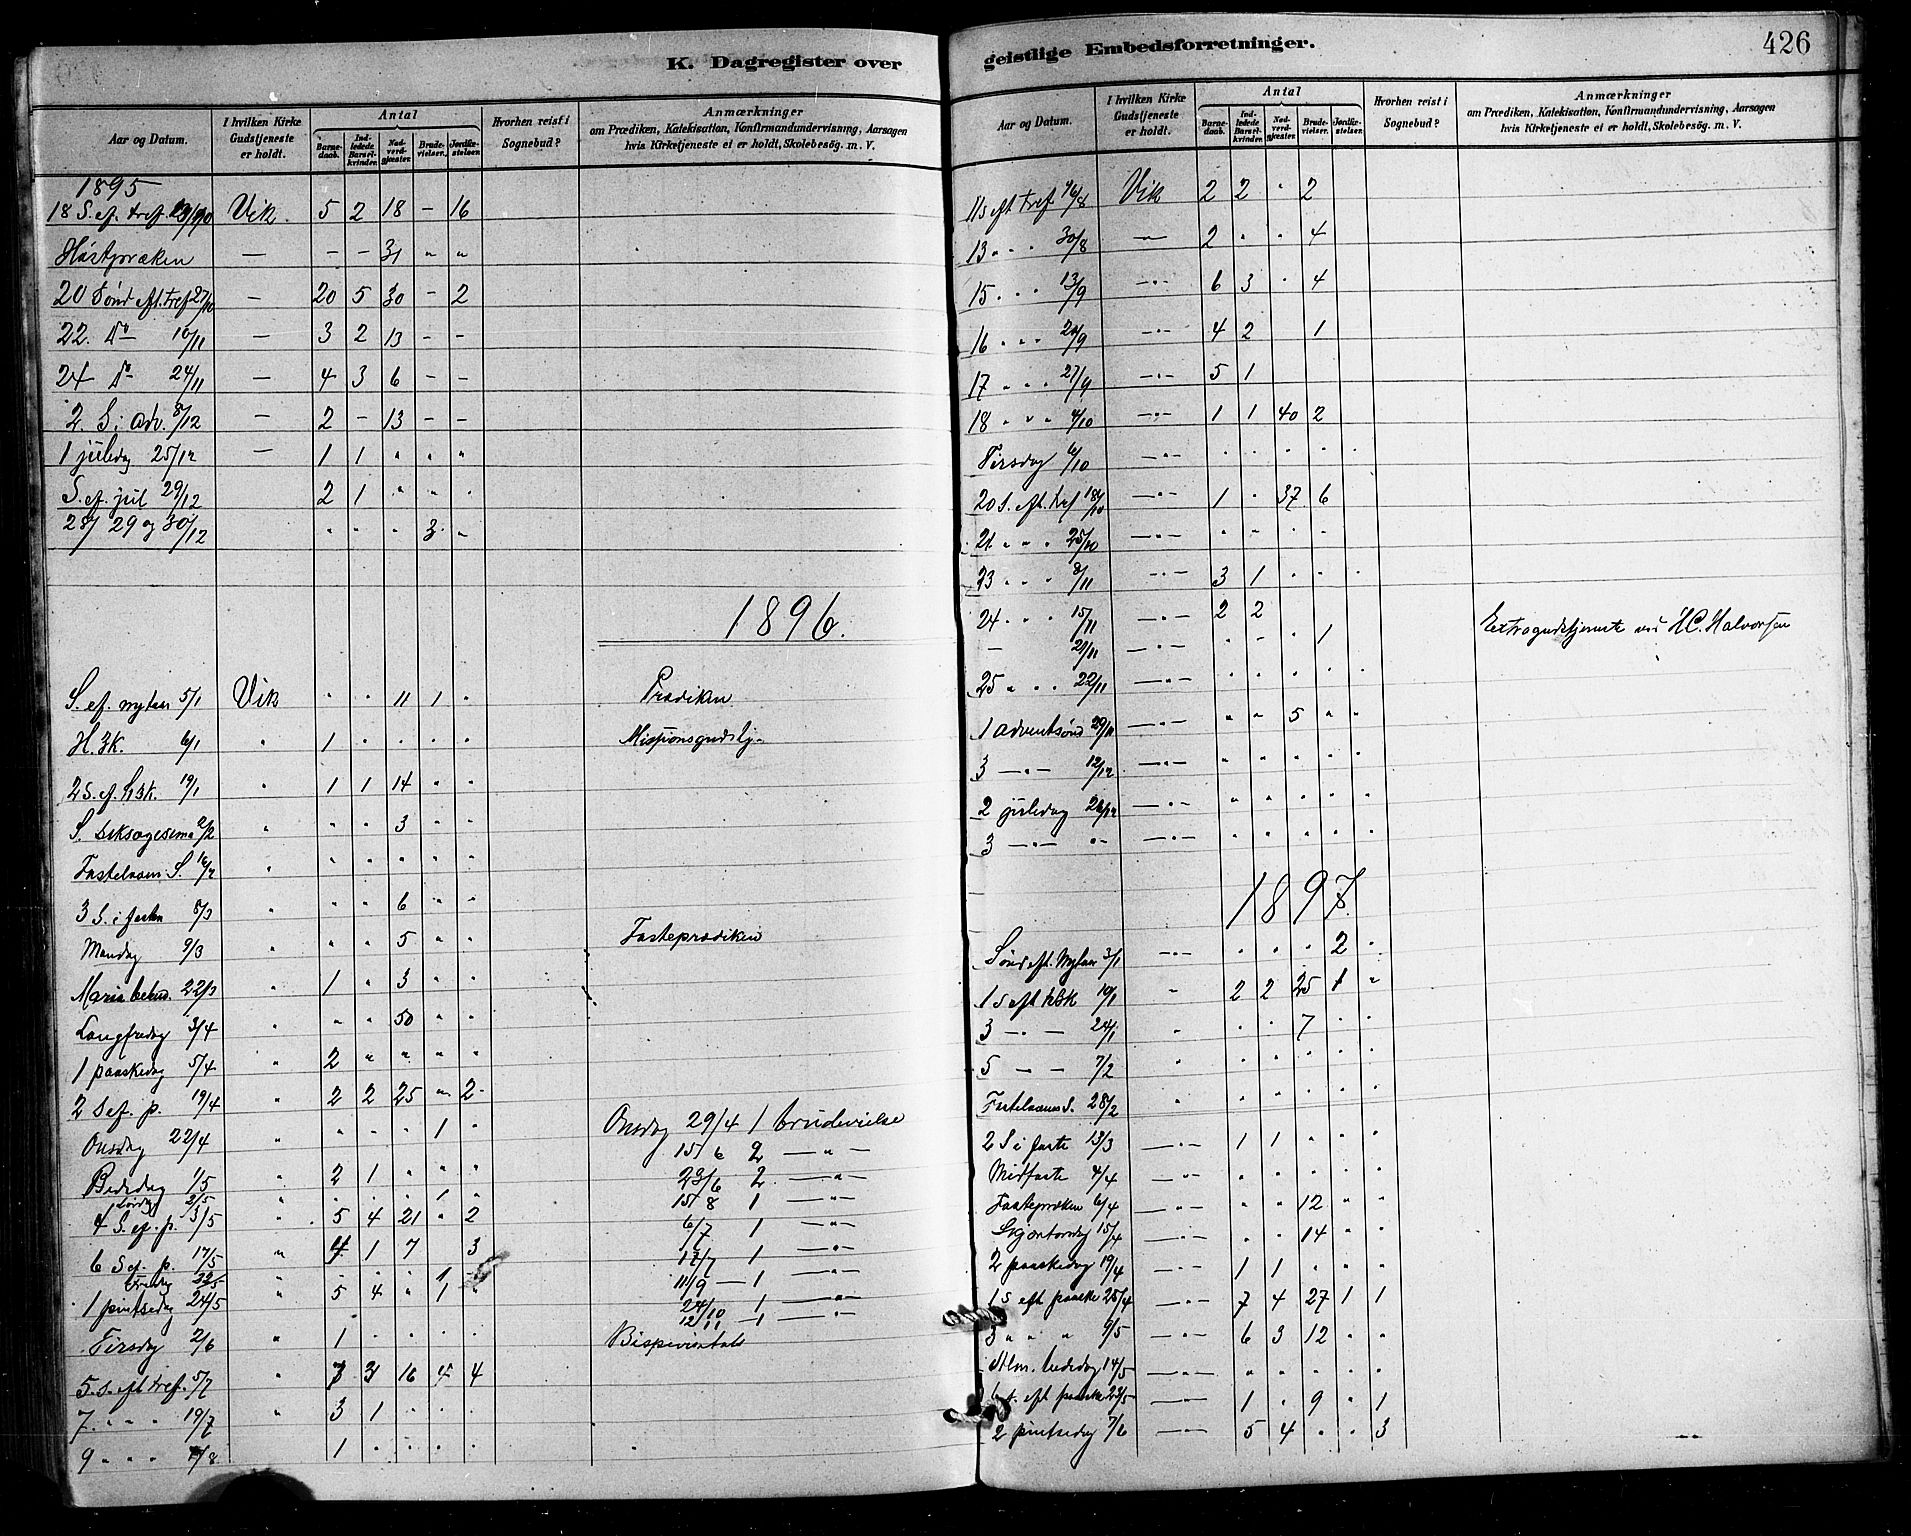 K. Dagregister over
Aar og Datum. I hvilken Kirke Gudstjeneste er holdt. Antal Barnedaab. Indledede Barselkvinder. Nadverdgjester. Brudevielser. Jordfæstelser. Hvorhen reist i Sognebud? Anmærkninger om Prædiken, Katekisation, Konfirmandundervisning, Aarsagen hvis Kirketjeneste ei er holdt, Skolebesög. m. V.
1895
18 S. ef. tref. Vik. 5 2 18 – 16
Høstpræken — – – 31 " "
20 Sønd eft. tref 27/10 — 20 5 30 – 2
22. Do 10/11 — 3 2 13 – –
24 Do 24/11 — 4 3 6 – –
2. S. i adv. 8/12 — 2 – 13 – –
1 juledag 25/12 — 1 1 " " "
S. ef. jul 29/12 2 1 " " "
28/ 29 og 30/12 " " " 3 "
1896.
S. ef. nytaar 5/1 Vik " " 11 1 " Prædiken
H. 3K. 6/1 " 1 " " " " Missionsgudstj.
2 S. ef. h3k. 19/1 " 1 1 14 " "
S. Seksagesima 2/2 " " " 3 " "
Fastelavns S. 16/2 " " " " " "
3 S. i fasten 8/3 " " " 6 " "
Mandag 9/3 " " " 5 " " Fasteprædiken
Maria bebud. 22/3 " 1 " 3 " "
Langfredag 3/4 " " " 50 " "
1 paaskedag 5/4 " 2 " " " "
2 S ef. p. 19/4 " 2 2 25 " 2
Onsdag 22/4 " " " " 1 " Onsdag 29/4 1 brudevielse
15/6 2 — " —
Bededag 1/5 " 2 1 " " " 23/6 2 — " —
Lørdag 2/5 " " " " 1 " 15/8 1 — " —
4 S. ef. p. 3/5 " 5 4 21 " 2 6/7 1 — " —
6 S ef. p. 17/5 " 4 1 7 3 17/7 1 — " —
Fredag 22/5 " " " " 1 11/9 — 1 — " —
1 pintsedag 24/5 " 5 4 " 1 " 24/10 1 — " —
12/11 — 1 — " —
Tirsdag 2/6 " 1 " " " " Bispevisitats
5. s. eft tref. 5/7 " 7 3 16 4 4
7. " " " 19/7 " 3 1 " " "
9 " " " 1 " " " "
geistlige Embedsforretninger.
426
Aar og Datum. I hvilken Kirke Gudstjeneste er holdt. Antal Barnedaab. Indledede Barselkvinder. Nadverdgjester. Brudevielser. Jordfæstelser. Hvorhen reist i Sognebud? Anmærkninger om Prædiken, Katekisation, Konfirmandundervisning, Aarsagen hvis Kirketjeneste ei er holdt, Skolebesög. m. V.
11 s eft tref 16/8 Vik 2 2 " 2
13 " " " 30/8 — " — 2 " " 4
15 " " " 13/9 — " — 6 3 " 4
16 " " " 20/9 — " — 4 2 1
17 " " " 27/9 — " — 5 1
18 " " " 4/10 — " — 1 1 40 2
Tirsdag 6/10 — " — " " " " "
20 S. eft. tref 18/10 — " — 1 " 37 6
21. " " " 25/10 — " — " " " "
23 " " " 8/11 — " — 3 1 " " "
24 " " 15/11 — " — 2 2 Extragudstjeneste ved H C. Halvorsen
— 21/11 — " — " " " 1
25 " " " 22/11 — " — " " " " "
1 adventssønd 29/11 — " — " " 5 " "
3 — " — — " — " " " " "
2 juledag 26/12 — " — " " " " "
3 — " — " " — " — " " " " "
1897.
Sønd eft. Nytaar 3/1 — " — " " " 2 "
1 s eft h3k 10/1 " 2 2 25 1 "
3 — " — 24/1 " " " 7 " "
5 — — 7/2 " " " " " "
Fastelavns S. 28/2 " " " " " "
2 S i faste — " — 1 1 " " "
Midfaste — " — " " " " "
Fastepræken 6/4 — " — " " 12 " "
Skjærtorsdag 15/4 — " — " " 14 " "
2 paaskedag 19/4 — " — 1 1 " " "
1 s eft paaske 25/4 — " — 7 4 27 1 1
3 " " " 9/5 — " — 6 3 12 " "
Alm. bededag 14/5 — " — " " " " "
eft paaske 23/5 — " — 1 " 9 " 1
2 pintsedag 7/6 — " — 5 4 " " 3